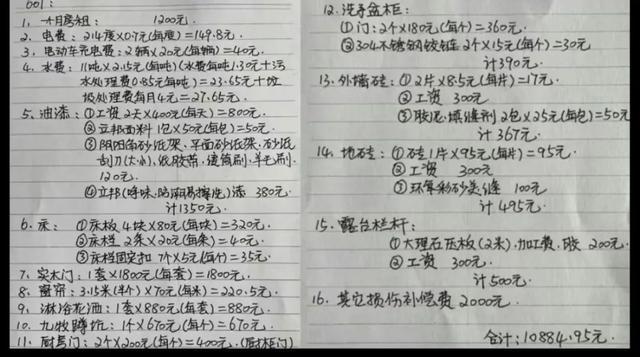 601:
1. 一个月房租: 1200元.
2. 电费: 214度×0.7元(每度)=149.8元.
3. 电动车充电费: 2辆×20元(每辆)=40元.
4. 水费: 11吨×2.15元(每吨)(水费每吨1.30元+污
水处理费0.85元每吨)=23.65元+垃
圾处理费每月4元=27.65元.
5. 油漆: ①工资2天×400元(每天)=800元.
②立邦面料1包×50元(每包)=50元.
③阴阳角砂纸架、平面砂纸架、砂纸
刮刀(大小)、纸胶带、滚筒刷、羊毛刷.
120元.
④立邦(呼味,防潮易擦洗)漆 380元.
计1350元.
6. 床: ①床板4块×80元(每块)=320元.
②床栏2条×20元(每条)=40元.
③床栏固定扣7个×5元(每个)=35元.
7. 实木门: 1套×1800元(每套)=1800元.
8. 窗帘: 3.15米(半个)×70元(每米)=220.5元.
9. 淋浴花洒: 1套×880元(每套)=880元.
10. 九牧蹲坑: 1个×670元(每个)=670元.
11. 厨房门: 2个×200元(每个)=400元. (厨柜门)
12. 洗手盆柜:
①门: 2个×180元(每个)=360元.
②304不锈钢铰链2个×15元(每个)=30元
计390元.
13. 外墙砖: ①2片×8.5元(每片)=17元.
②工资 300元
③胶泥.填缝剂2包×25元(每包)=50元
计367元.
14. 地砖: ①砖1片×95元(每片)=95元.
②工资 300元
③环氧彩砂美缝 100元
计495元.
15. 露台栏杆:
①大理石压板(2米).加工费.胶 200元.
②工资 300元.
计500元.
16. 其它损伤补偿费2000元.
合计: 10884.95元